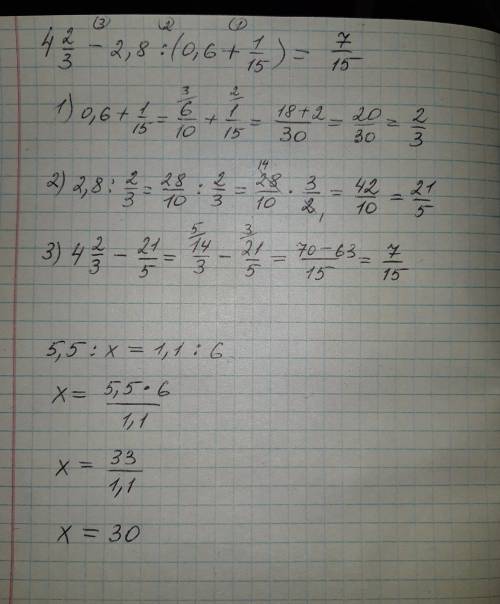 ③ ② ①
4 2/3 − 2,8 : (0,6 + 1/15) = 7/15
1) 0,6 + 1/15 = 6/10 ³ + 1/15 ² = (18+2)/30 = 20/30 = 2/3
2) 2,8 : 2/3 = 28/10 : 2/3 = 28¹⁴/10 · 3/2₁ = 42/10 = 21/5
3) 4 2/3 − 21/5 = 14/3 ⁵ − 21/5 ³ = (70−63)/15 = 7/15
5,5 : x = 1,1 : 6
x = (5,5 · 6)/1,1
x = 33/1,1
x = 30